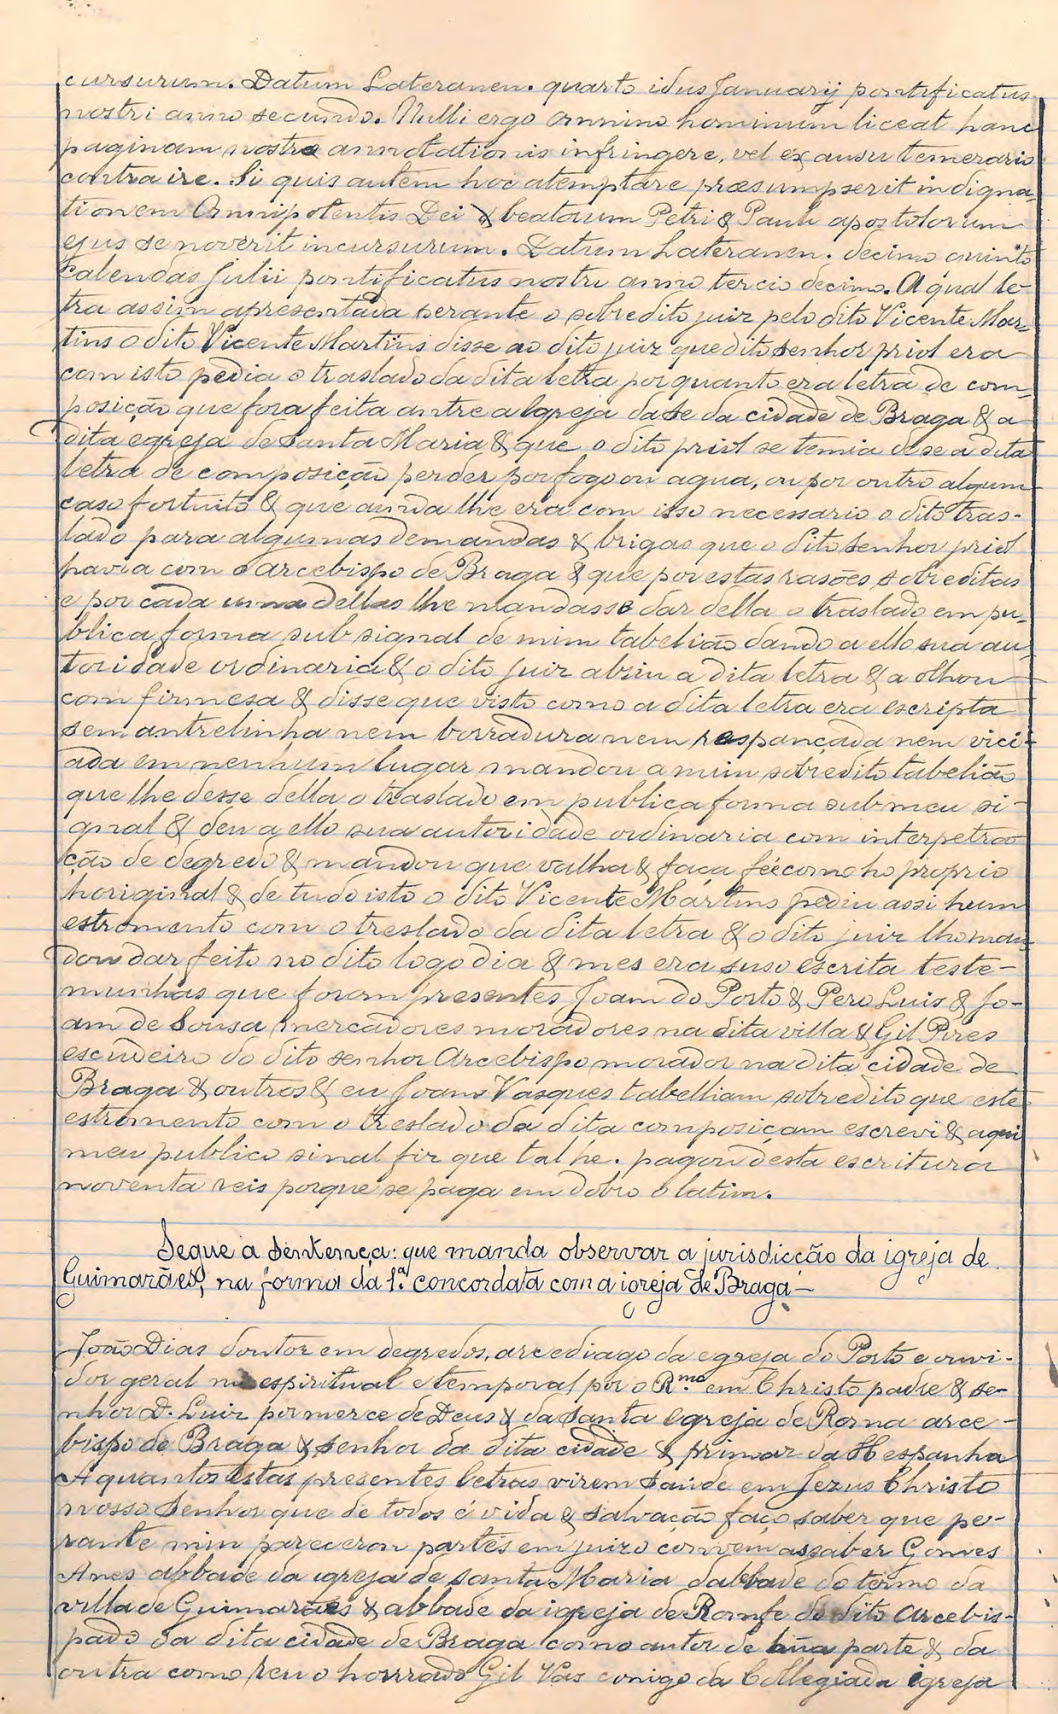 cursurum. Datum Lateranen. quarto idus Januarij pontificatus
nostri anno secundo. Nulli ergo omnino hominum liceat hanc
paginam nostre annotationis infringere, vel ex ausu temerario
contraire. Si quis autem hoc atemptare præsumpserit indigna-
tionem Omnipotentis Dei & beatorum Petri & Pauli apostolorum
ejus se noverit incursurum. Datum Lateranen. decimo quinto
Calendas Julii pontificatus nostri anno tercio decimo. A qual le-
tra assim apresentada perante o sobredito juiz pelo dito Vicente Mar-
tins o dito Vicente Martins disse ao dito juiz que dito senhor priol era
com isto pedia o traslado da dita letra por quanto era letra de com-
posição que fora feita antre a Igreja da Se da cidade de Braga & a
dita egreja de Santa Maria & que o dito priol se temia de se a dita
letra de composição perder por fogo ou agua, ou por outro algum
caso fortuito & que ainda lhe era com isso necessario o dito tras-
lado para algumas demandas & brigas que o dito senhor priol
havia com o arcebispo de Braga & que por estas rasões sobreditas
e por cada uma dellas lhe mandasse dar della o traslado em pu-
blica forma sub signal de mim tabelião dando a ello sua au-
toridade ordinaria & o dito juiz abriu a dita letra & a olhou
com firmesa & disse que visto como a dita letra era escripta
sem antrelinha nem borradura nem respançada nem vici-
ada em nenhum lugar mandou a mim sobredito tabelião
que lhe desse della o traslado em publica forma sub meu si-
gnal & deu a ello sua autoridade ordinaria com interpetra-
ção de degredo & mandou que valha & faça fé como ho proprio
horiginal & de tudo isto o dito Vicente Martins pediu assi hum
estromento com o treslado da dita letra & o dito juiz lho man
dou dar feito no dito logo dia & mes era suso escrita teste-
munhas que foram presentes Joam do Porto & Pero Luis & Jo-
am de Sousa mercadores moradores na dita villa & Gil Pires
escudeiro do dito senhor Arcebispo morador na dita cidade de
Braga & outros & eu Joam Vasques tabelliam sobredito que este
estromento com o treslado da dita composiçam escrevi & aqui
meu publico sinal fiz que tal he. pagou desta escritura
noventa reis porque se paga em dobro o latim.
Segue a Sentença: que manda observar a jurisdicção da igreja de
Guimarães, na forma da 1.ª concordata com a igreja de Braga—
João Dias doutor em degredos, arcediago da egreja do Porto e ouvi-
dor geral no espiritual e temporal por o R.mo em Christo padre & se-
nhor D. Luiz por merce de Deus & da Santa Egreja de Roma arce-
bispo de Braga & senhor da dita cidade & primaz da Hespanha
A quantos estas presentes letras virem saude em Jezus Christo
nosso Senhor que de todos é vida & salvação faço saber que pe-
rante mim pareceron partes em juizo convem assaber Gomes
Anes abbade da igreja de Santa Maria dabbade do termo da
villa de Guimarães & abbade da igreja de Ronfe do dito Arcebis-
pado da dita cidade de Braga como autor de hũa parte & da
outra como reu o honrrado Gil Vas conigo da Collegiada egreja